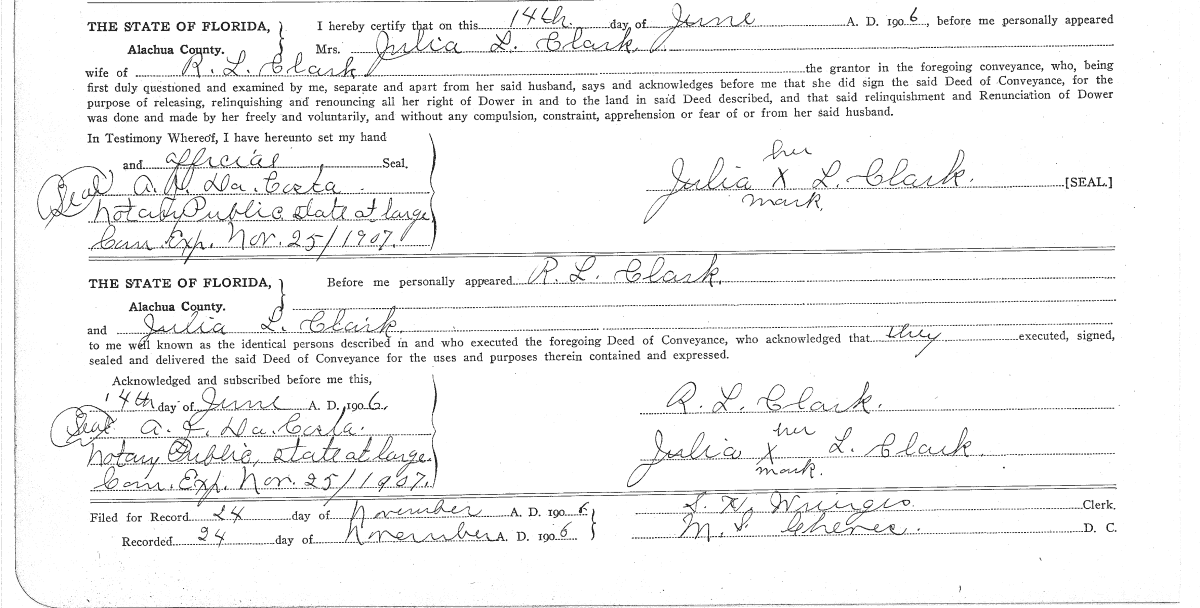 THE STATE OF FLORIDA, I hereby certify that on this 14th. day of June A. D. 1906, before me personally appeared
Alachua County. Mrs. Julia L. Clark,
wife of R. L. Clark the grantor in the foregoing conveyance, who, being
first duly questioned and examined by me, separate and apart from her said husband, says and acknowledges before me that she did sign the said Deed of Conveyance, for the
purpose of releasing, relinquishing and renouncing all her right of Dower in and to the land in said Deed described, and that said relinquishment and Renunciation of Dower
was done and made by her freely and voluntarily, and without any compulsion, constraint, apprehension or fear of or from her said husband.
In Testimony Whereof, I have hereunto set my hand
and official Seal.
(Seal) A. J. Da. Costa
Notary Public, state at large
Com. Exp. Nov. 25/1907.
her
Julia X L. Clark. [SEAL.]
mark.
THE STATE OF FLORIDA, Before me personally appeared R. L. Clark,
Alachua County.
and Julia L. Clark
to me well known as the identical persons described in and who executed the foregoing Deed of Conveyance, who acknowledged that they executed, signed,
sealed and delivered the said Deed of Conveyance for the uses and purposes therein contained and expressed.
Acknowledged and subscribed before me this,
14th day of June A. D. 1906,
(Seal) A. J. Da. Costa.
Notary Public, state at large.
Com. Exp. Nov. 25/1907.
R. L. Clark.
her
Julia X L. Clark.
mark.
Filed for Record 24 day of November A. D. 1906 S. H. Clerk.
Recorded 24 day of November A. D. 1906 M. S. D. C.